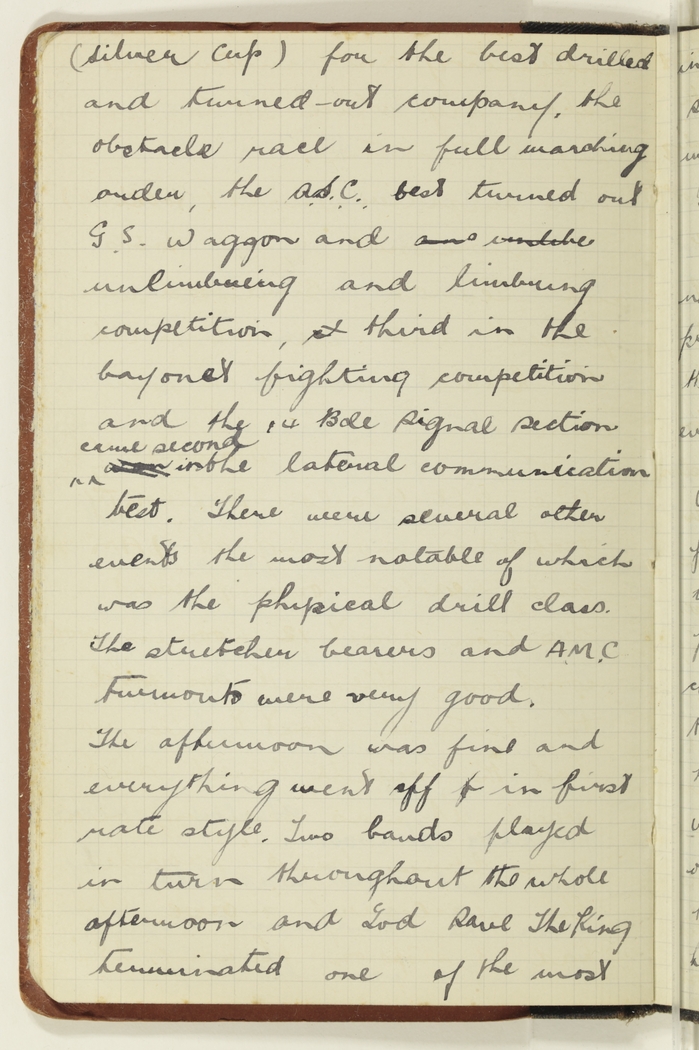 (silver Cup) for the best drilled
and turned-out company, the
obstacle race in full marching
order, the A.S.C. best turned out
G.S. Waggon and and unlibe
unlimbueing and limbring
competition, & third in the
bayonet fighting competition
and the 14 Bde Signal section
came second
in the lateral communication
test. There were several other
events the most notable of which
was the phpical drill class.
The stretcher bearers and A.M.C
turnouts were very good.
The afternoon was fine and
everything went off in first
rate style. Two bands played
in turn throughout the whole
afternoon and God Save The King
terminated one of the most